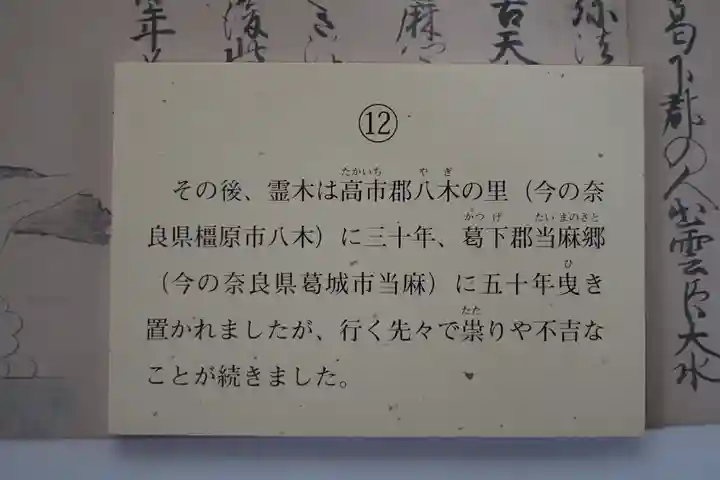 ⑫
その後、霊木は高市郡八木の里（今の奈
良県橿原市八木）に三十年、葛下郡当麻郷
（今の奈良県葛城市当麻）に五十年曳き
置かれましたが、行く先々で祟りや不吉な
ことが続きました。
葛下郡の人出雲臣大水